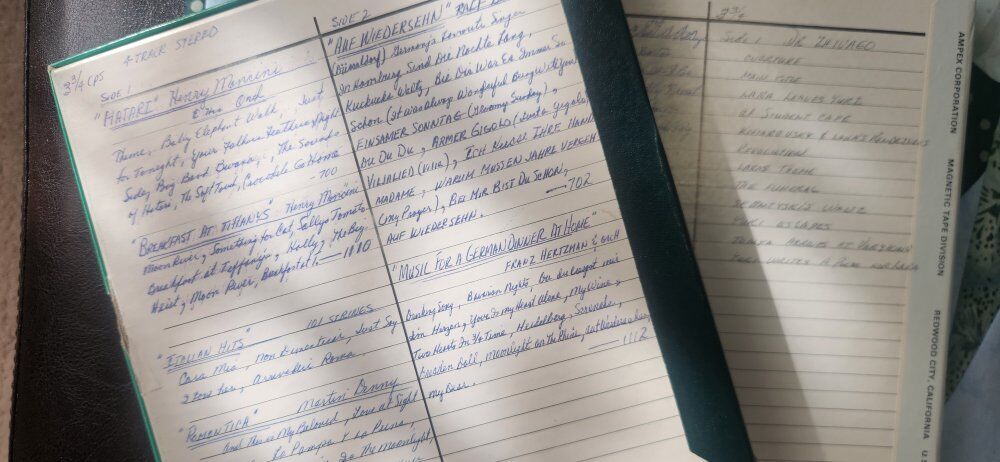 3 3/4 CPS 4-TRACK STEREO
SIDE 1
"HATARI" Henry Mancini
& his Orch
Theme, Baby Elephant Walk, Just
for Tonight, Your Father's Feathers, Night
Side, Big Band Bwana, The Sounds
of Hatari, The Soft Touch, Crocodile Go Home
—700
"BREAKFAST AT TIFFANYS" Henry Mancini
Moon River, Something for Cat, Sallys Tomato
Breakfast at Tiffanys, Holly, The Big
Heist, Moon River, — 1010
"ITALIAN HITS" 101 STRINGS
Cara Mia, Non Dimenticar, Just Say
I Love her, Arrivederci Roma
"ROMANTICA" Martin Denny
And This is My Beloved, Love at Sight
SIDE 2
"AUF WIEDERSEHN"
(Düsseldorf) Germany's Favourite Singer
In Hamburg Sind Die Nächte Lang,
Kuckucks Waltz, Bei Dir War Es Immer So
Schon (It was Always Wonderful Being With You)
EINSAMER SONNTAG (Gloomy Sunday),
DU DU DU, ARMER GIGOLO (Just a Gigolo)
VILJALIED (Vilia), ICH KÜSSE IHRE HAND
MADAME, WARUM MÜSSEN JAHRE VERGEH
(My Prayer), BEI MIR BIST DU SCHON,
AUF WIEDERSEHN. —702
"MUSIC FOR A GERMAN DINNER AT HOME"
FRANZ HERTZMAN & ORCH
Drinking Song, Bavarian Nights, Du du liegst mir
im Herzen, Yours Is My Heart Alone, My Wine &
Two Hearts In 3/4 Time, Heidelberg, Serenade,
doll, Moonlight on the Rhine, auf Wiedersehn
My Dear. —1112
3 3/4
Side 1 DR ZHIVAGO
OVERTURE
MAIN TITLE
LARA LEAVES YURI
AT STUDENT CAFE
KOMAROVSKY & LARA'S RENDEZVOUS
REVOLUTION
LARAS THEME
THE FUNERAL
WALTZ
YURI ESCAPES
TONYA ARRIVES AT VARYKINO
YURI WRITES A POEM FOR LARA
AMPEX CORPORATION MAGNETIC TAPE DIVISION REDWOOD CITY, CALIFORNIA U.